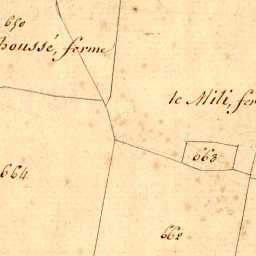 650
houssé, ferme
le Miti, fer
663
664
662